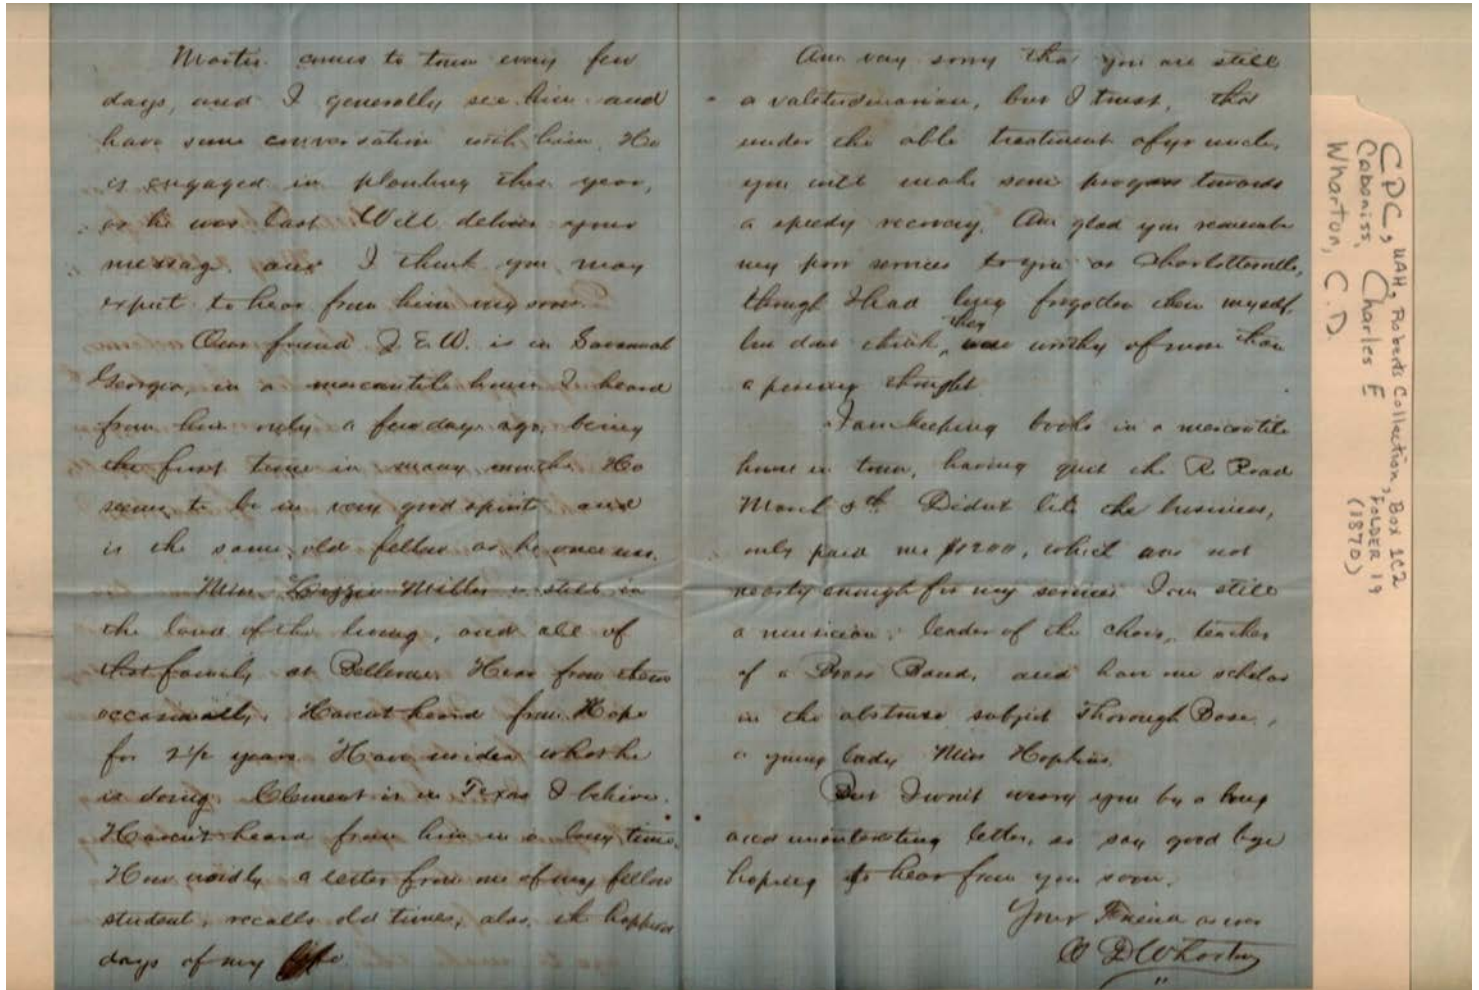 Martin comes to town every few
days, and I generally see him and
have some conversation with him. He
is engaged in planting this year,
as he was last. Will deliver your
message, and I think you may
expect to hear from him very soon.
Our friend J. E. W. is in Savanah
Georgia, in a mercantile house. I heard
from him only a few days ago, being
the first time in many months. He
seems to be in very good spirits and
is the same old fellow as he once was.
Miss Lizzie Miller is still in
the land of the living, and all of
that family at Bellevue. Hear from them
occasionally. Havent heard from Hope
for 2 1/2 years. Have no idea what he
is doing. Clement is in Texas I believe.
Havent heard from him in a long time.
How vividly a letter from one of my fellow
students, recalls old times, also, the happiest
days of my life.
Am very sorry that you are still
a valetudinarian, but I trust, that
under the able treatment of yr uncle,
you will make some progress towards
a speedy recovery. Am glad you remember
my poor services to you at Charlottesville,
though I had long forgotten them myself,
but dont think, they were worthy of more than
a passing thought.
I am keeping books in a mercantile
house in town, having quit the R Road
March 8th. Didnt like the business,
only paid me $1200, which was not
nearly enough for my services. I am still
a musician, leader of the choir, teacher
of a Brass Band, and have one scholar
in the abstruse subject Thorough Base,
a young lady Miss Hopkins.
But I wont weary you by a long
and uninteresting letter, so say good bye
hoping to hear from you soon.
Your Friend as ever
C D Wharton
CDC, UAH, Roberts Collection, Box 1C2
Cabaniss, Charles E FOLDER 19
Wharton, C. D. (1870)